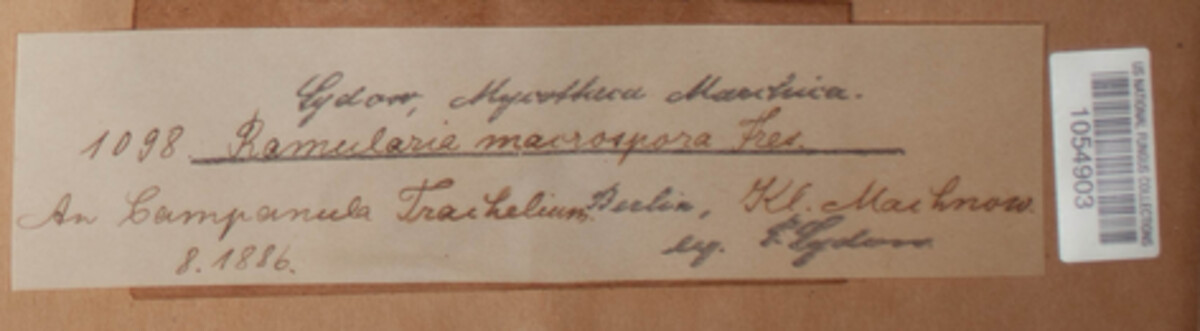 Sydow, Mycotheca Marchica.
1098. Ramularia macrospora Fres.
An Campanula Trachelium, Berlin, Kl. Machnow.
8.1886.
leg. P. Sydow
US NATIONAL FUNGUS COLLECTIONS
1054903